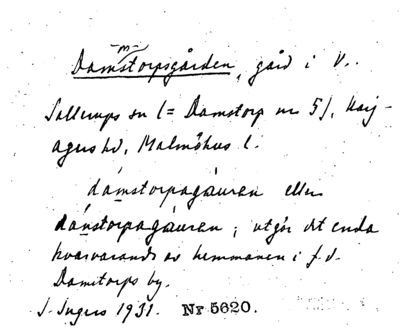 Damstorpsgården, gård i V.
Sallerups sn (= Damstorp nr 5), Harj-
agers hd, Malmöhus l.
dámstorpagáuren eller
dánstorpagáuren; utgör det enda
kvarvarande av hemmanen i f. d.
Damstorps by.
J. Ingers 1931. Nr 5620.